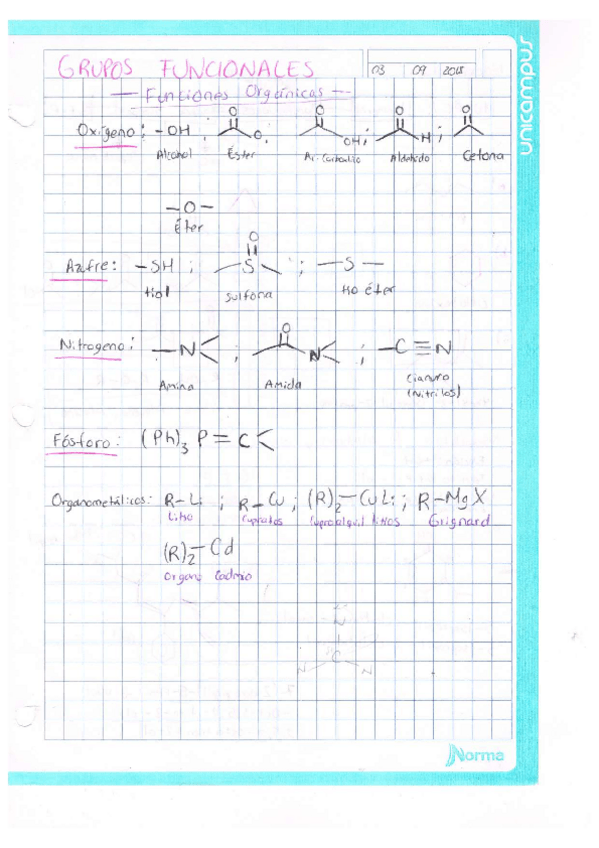 GRUPOS FUNCIONALES
03 09 2018
unicampus
— Funciones Orgánicas —
Oxígeno: -OH ; O O ; O OH ; O H ; O
Alcohol Éster Ac. Carboxílico Aldehído Cetona
-O-
Éter
Azufre: -SH ; O S ; -S-
tiol Sulfona tio éter
Nitrogeno: -N ; O N ; -C≡N
Amina Amida Cianuro
(Nitrilos)
Fósforo: (Ph)3 P = C
Organometálicos: R-Li ; R-Cu ; (R)2-CuLi ; R-MgX
Litio Cupratos Litios Grignard
(R)2-Cd
Organo Cadmio
N
C
N N
Norma